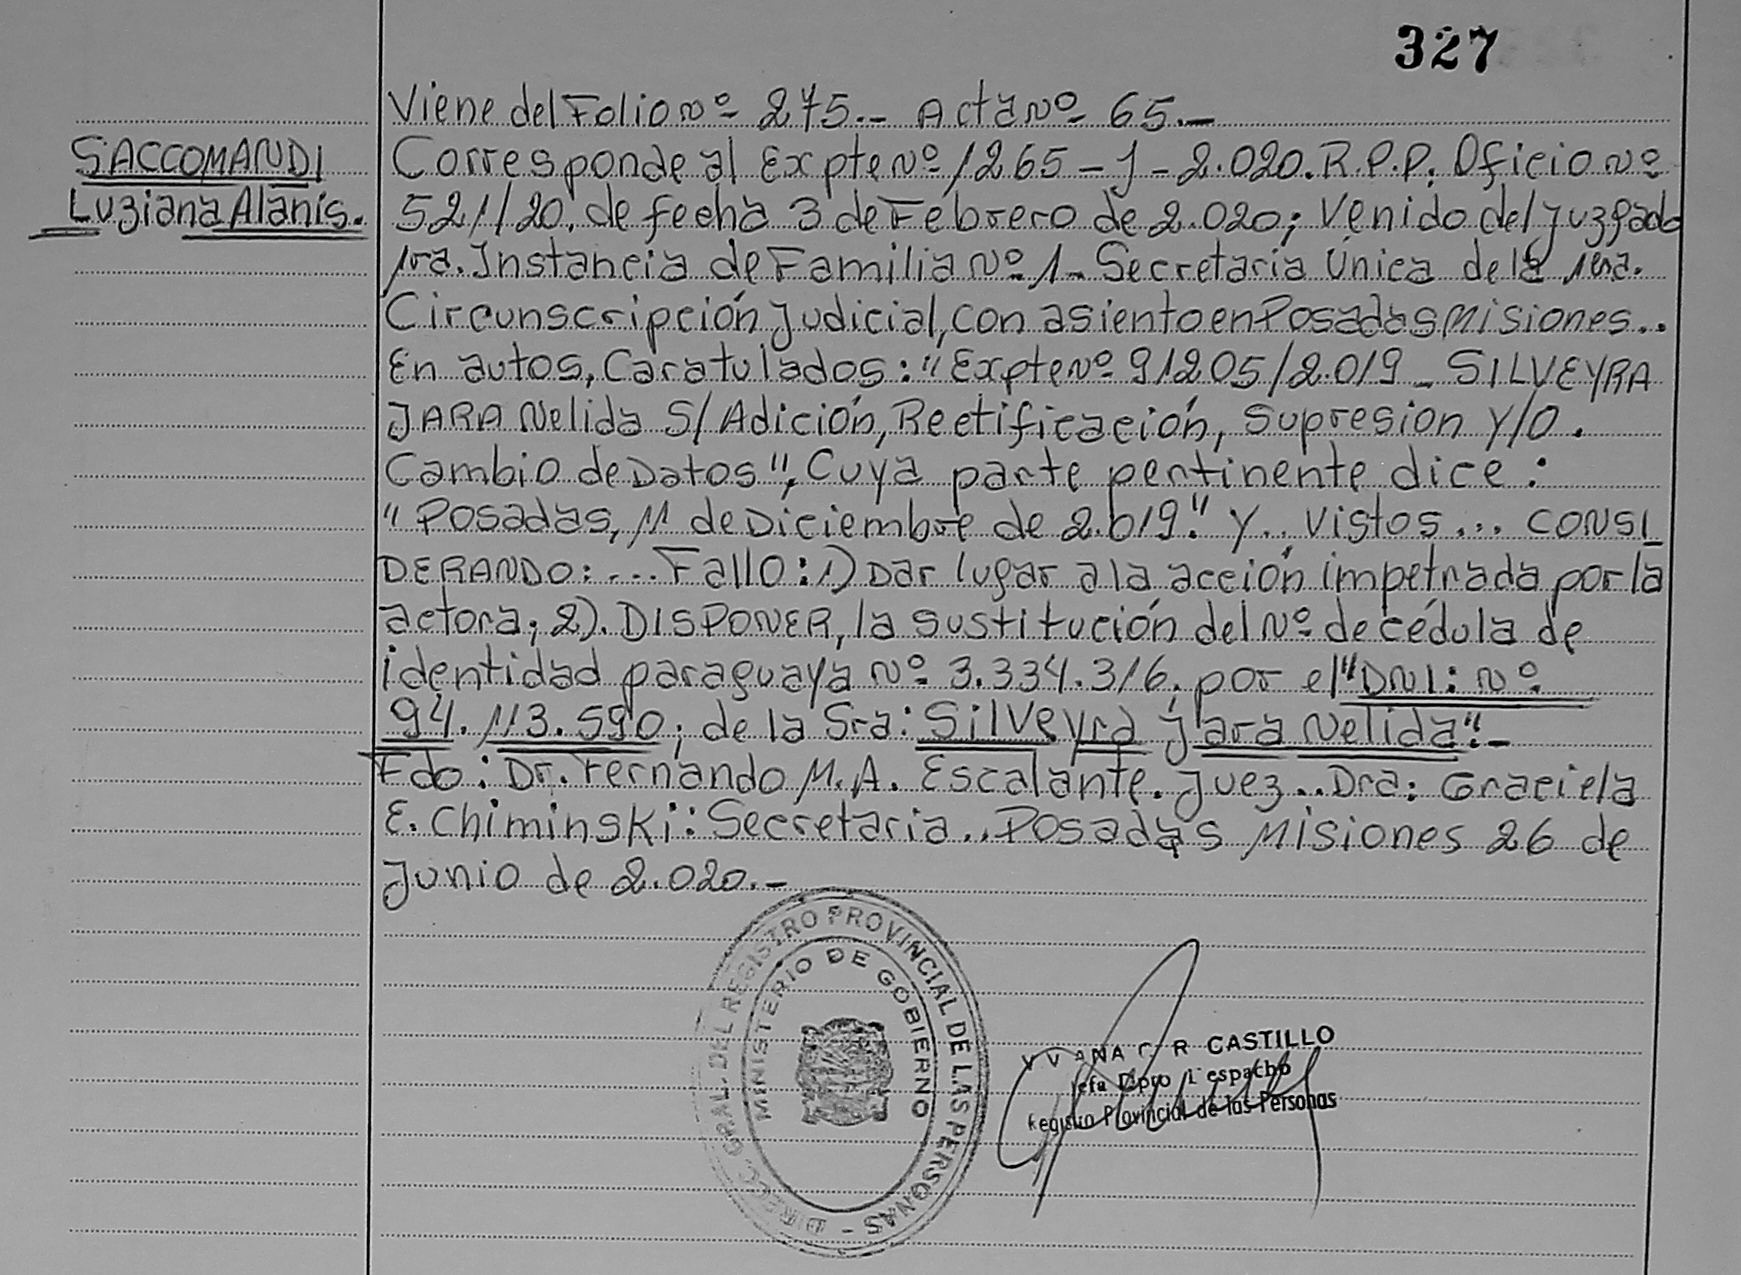 327
Viene del Folio Nº 275.- Acta Nº 65.-
SACCOMANDI
Luziana Alanis.
Corresponde al Expte Nº 1265-J-2.020. R.P.P. Oficio Nº
521/20. de fecha 3 de Febrero de 2.020; Venido del Juzgado
1ra. Instancia de Familia Nº 1- Secretaria Única de la 1era.
Circunscripción Judicial, con asiento en Posadas Misiones..
En autos, Caratulados: "Expte Nº 91205/2.019 - SILVEYRA
JARA Nelida S/ Adición, Rectificación, Supresion Y/O.
Cambio de Datos", Cuya parte pertinente dice:
"Posadas, 11 de Diciembre de 2.019." Y.. Vistos... CONSI
DERANDO:... Fallo: 1) Dar lugar a la acción impetrada por la
actora; 2). DISPONER, la sustitución del Nº de cédula de
identidad paraguaya Nº 3.334.316. por el "DNI: Nº
94.113.590; de la Sra: Silveyra Jara Nelida".-
Fdo: Dr. Fernando M.A. Escalante. Juez.. Dra: Graciela
E. Chiminski: Secretaria.. Posadas Misiones 26 de
Junio de 2.020.-
DIRECC. GRAL. DEL REGISTRO PROVINCIAL DE LAS PERSONAS -
MINISTERIO DE GOBIERNO
R CASTILLO
Jefa Dpto Despacho
Registro Provincial de las Personas